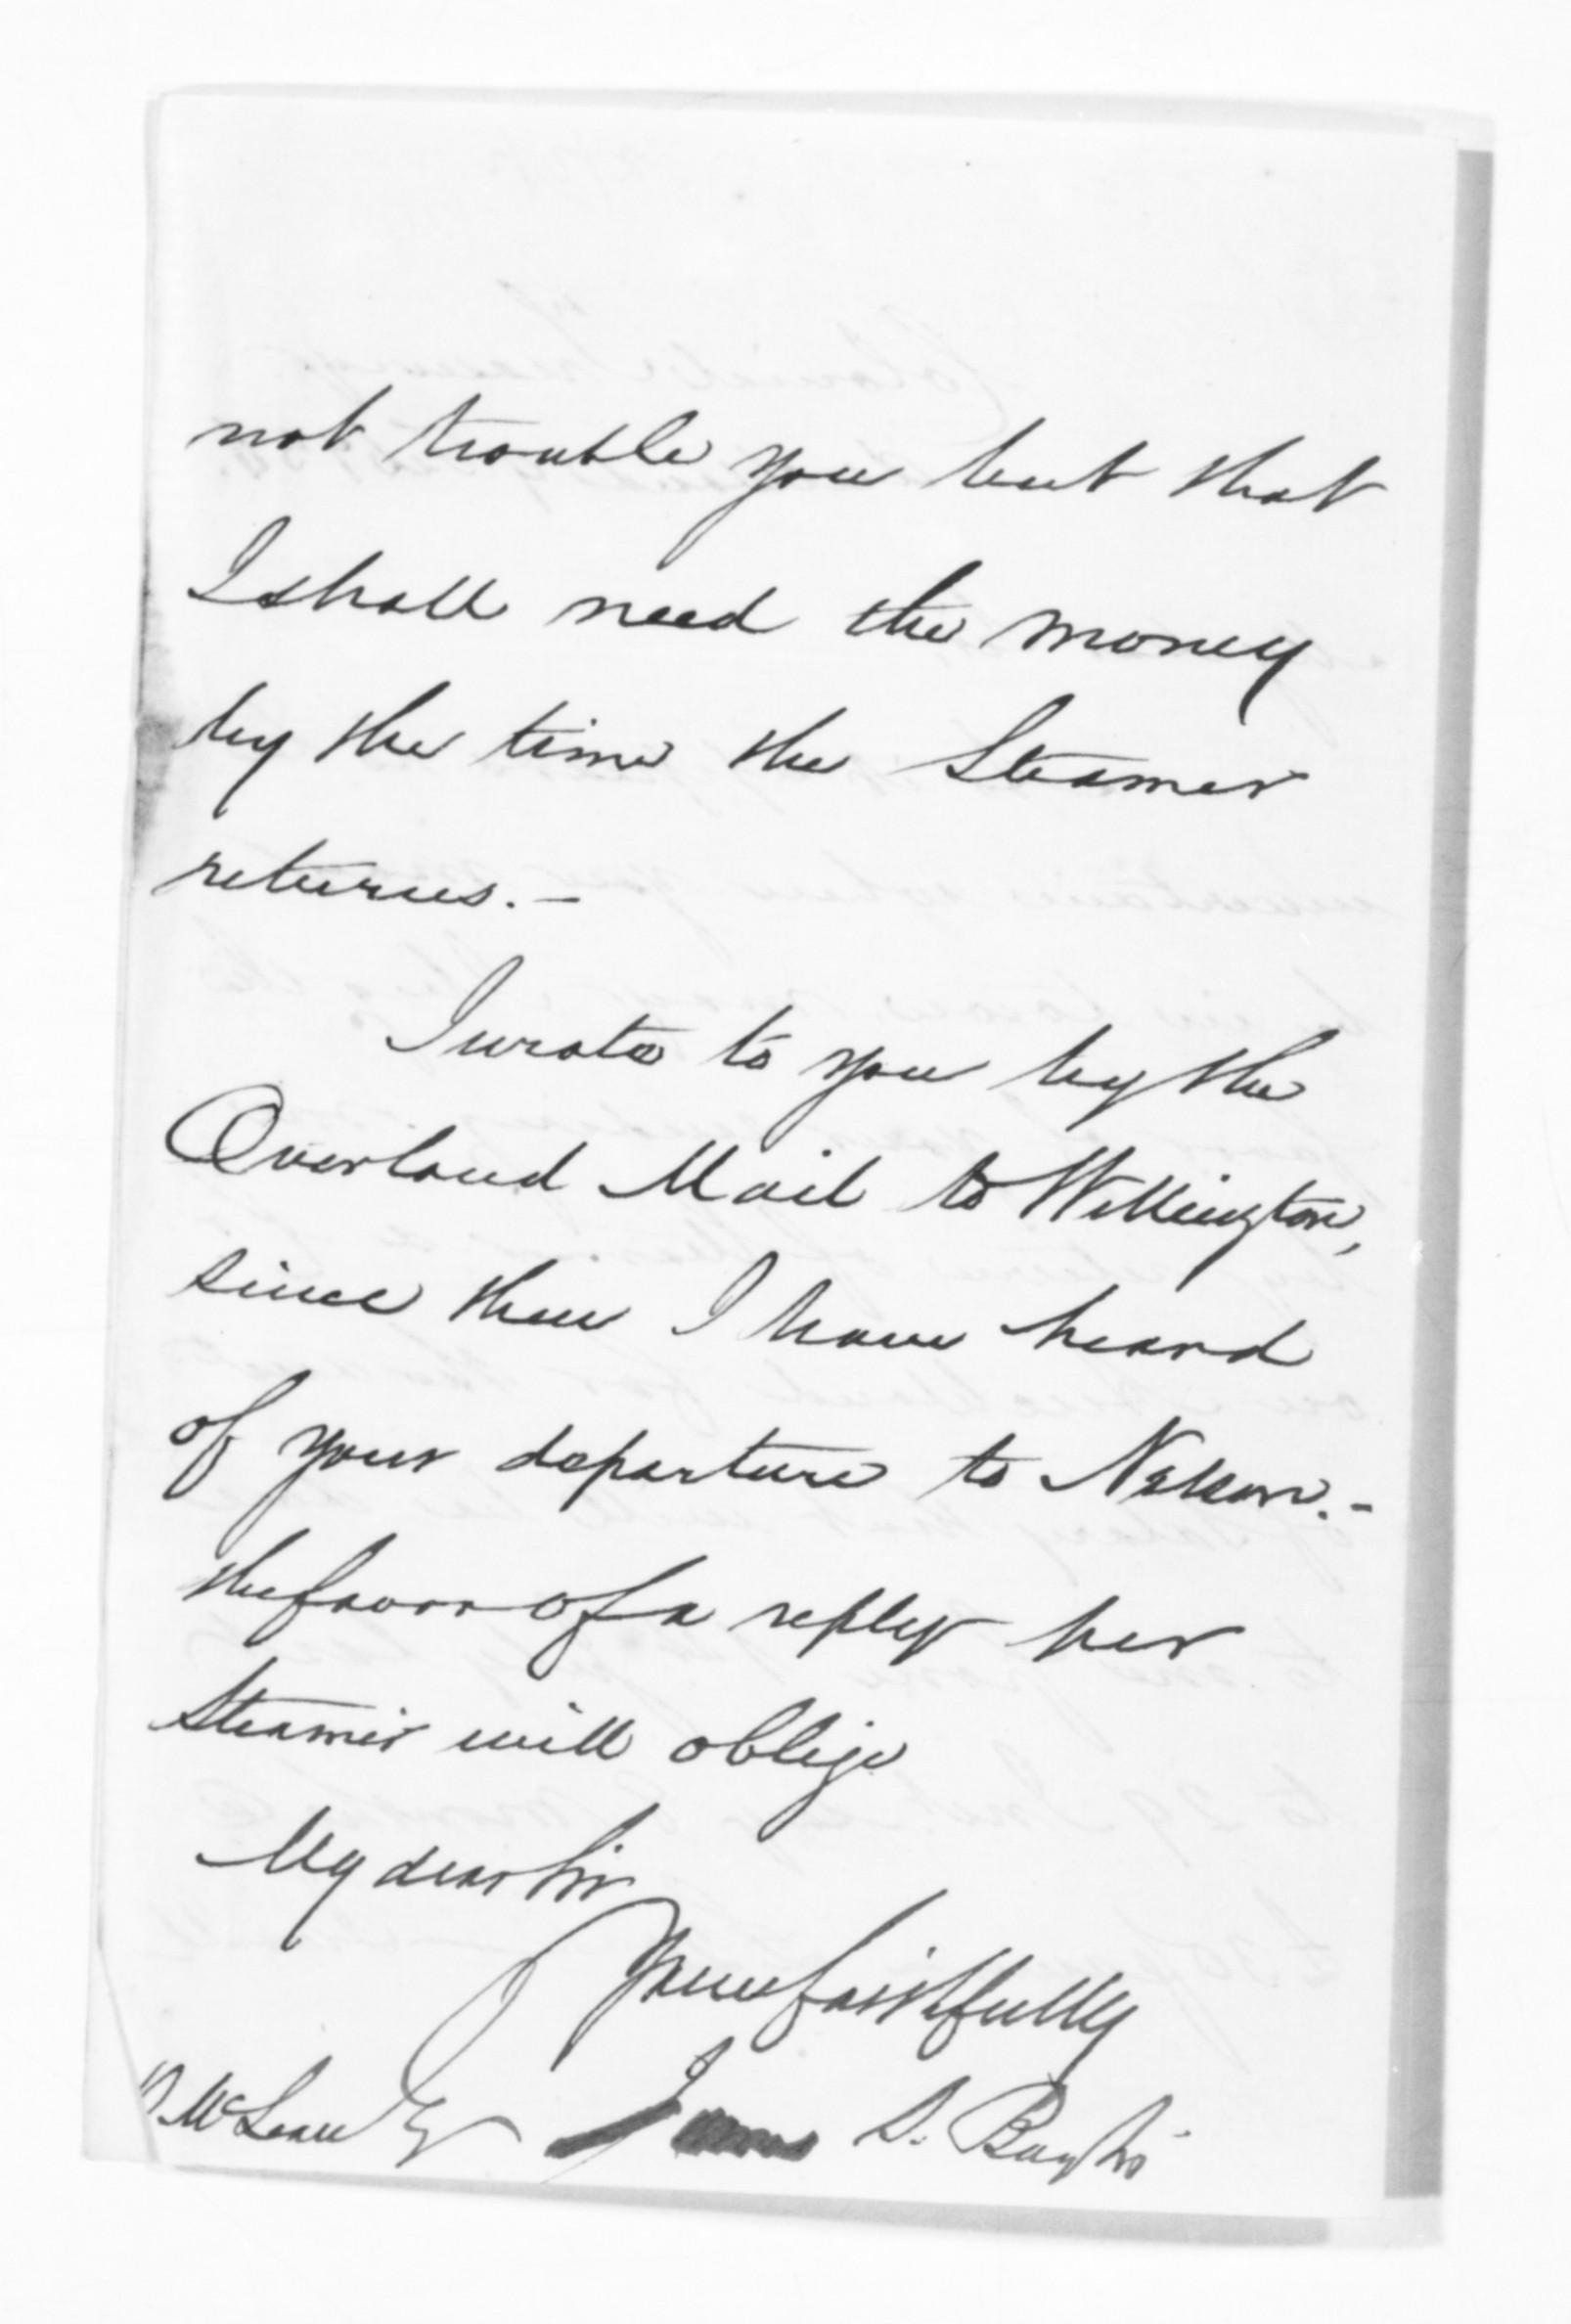 not trouble you but that
I shall need the money
by the time the Steamer
returns. -
I wrote to you by the
Overland Mail to Wellington,
since then I have heard
of your departure to Nelson. -
the favor of a reply per
Steamer will oblige
My dear Sir
Yours faithfully
D. McLean Esq James S.